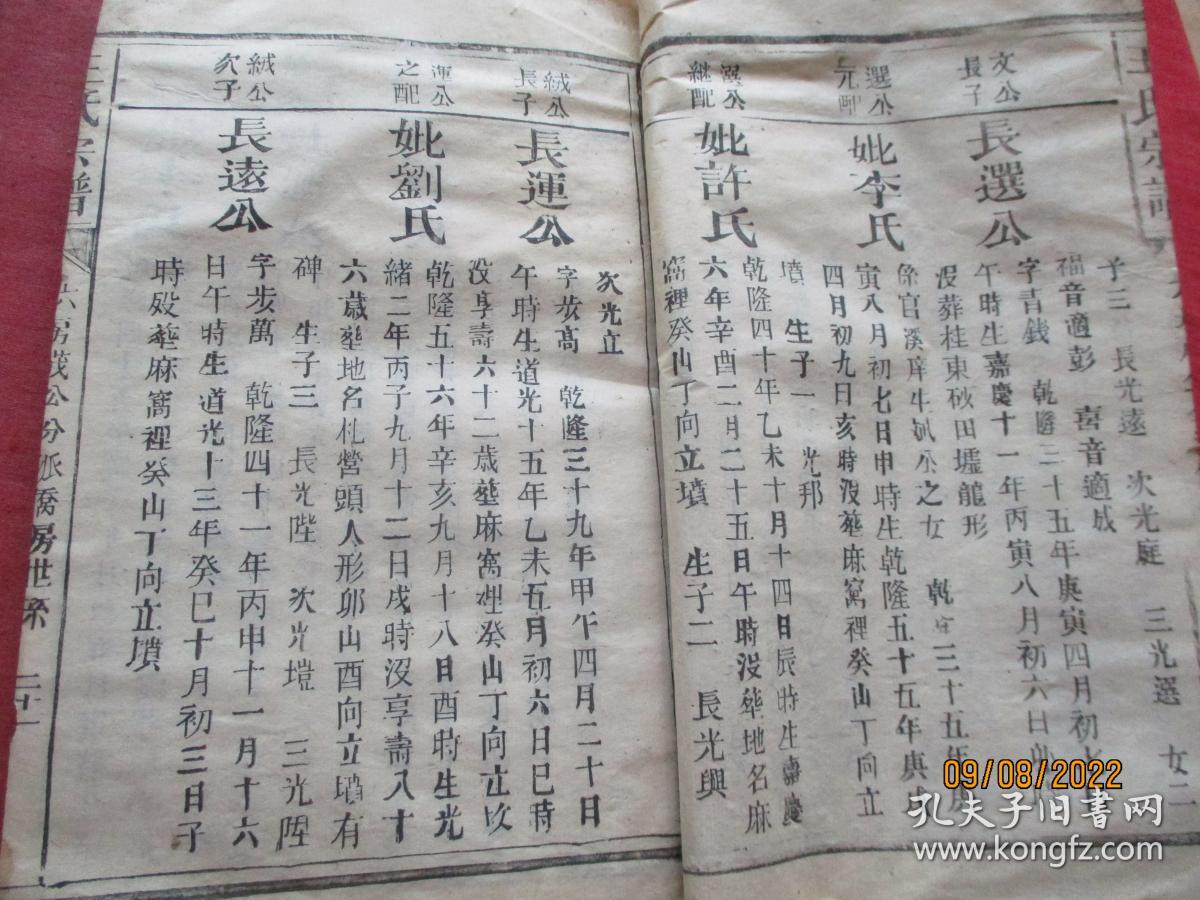 王氏宗譜
子三 長光遠 次光庭 三光選 女二
福音適彭 喜音適成
文公長子
長選公
字青錢 乾隆三十五年庚寅四月初七
午時生嘉慶十一年丙寅八月初六日
沒葬桂東砂田墟龍形
選公元配
妣李氏
係官溪庠生 公之女 乾 三十五年庚
寅八月初七日申時生乾隆五十五年庚戌
四月初九日亥時沒葬麻窩裡癸山丁向立
墳 生子一 光邦
選公繼配
妣許氏
乾隆四十年乙未十月十四日辰時生嘉慶
六年辛酉二月二十五日午時沒葬地名麻
窩裡癸山丁向立墳 生子二 長光興
次光立
絨公長子
長運公
字步高 乾隆三十九年甲午四月二十日
午時生道光十五年乙未五月初六日巳時
沒享壽六十二歲塟麻窩裡癸山丁向立坟
運公之配
妣劉氏
乾隆五十六年辛亥九月十八日酉時生光
緒二年丙子九月十二日戌時沒享壽八十
六歲塟地名札營頭人形卯山酉向立墳有
碑 生子三 長光陛 次光塏 三光陞
絨公次子
長逺公
字步萬 乾隆四十一年丙申十一月十六
日午時生道光十三年癸巳十月初三日子
時殁塟麻窩裡癸山丁向立墳
王氏宗譜
六房茂公分派喬房世系
09/08/2022
孔夫子旧书网
www.kongfz.com